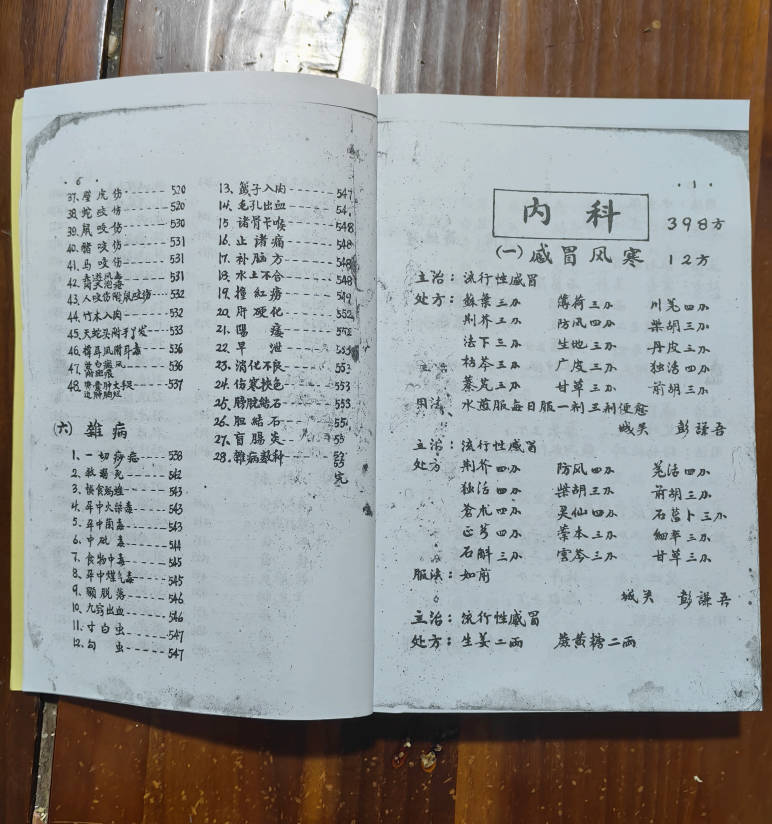 · 6 ·
37. 壁虎伤 520
38. 蛇咬伤 520
39. 鼠咬伤 530
40. 猪咬伤 531
41. 马咬伤 531
42. 531
43. 人咬伤附鼠咬伤 532
44. 竹木入肉 532
45. 天蛇头附手丫发 533
46. 536
47. 536
48. 537
(六) 雜病
1. 一切痧症 538
2. 542
3. 误食蚂蝗 543
4. 543
5. 543
6. 中砒毒 544
7. 食物中毒 545
8. 煤气毒 545
9. 颐脱落 546
10. 九窍出血 546
11. 寸白虫 547
12. 勾虫 547
13. 入肉 547
14. 毛孔出血 54
15. 诸骨卡喉 548
16. 止诸痛 548
17. 补脑方 548
18. 水土不合 548
19. 撞红痨 549
20. 肝硬化
21. 陽痿
22. 早泄
23. 消化不良 553
24. 伤寒换色 553
25. 膀胱结石 553
26. 胆结石
27. 盲腸炎
28. 雜病数种
完
· 1 ·
内科 398方
(一) 感冒风寒 12方
主治：流行性感冒
处方：蘇葉三分 薄荷三分 川羌四分
荆芥三分 防风四分 柴胡三分
法下三分 生地三分 丹皮三分
枯芩三分 广皮三分 独活四分
蔓荆三分 甘草三分 前胡三分
用法：水煎服每日服一剂三剂便愈
城关 彭謹吾
主治：流行性感冒
处方 荆芥四分 防风四分 羌活四分
独活四分 柴胡三分 前胡三分
蒼朮四分 灵仙四分 石菖卜三分
正芎四分 藁本三分 細辛三分
石斛三分 雲苓三分 甘草三分
服法：如前
城关 彭謹吾
主治：流行性感冒
处方：生姜二両 蔗黄糖二両